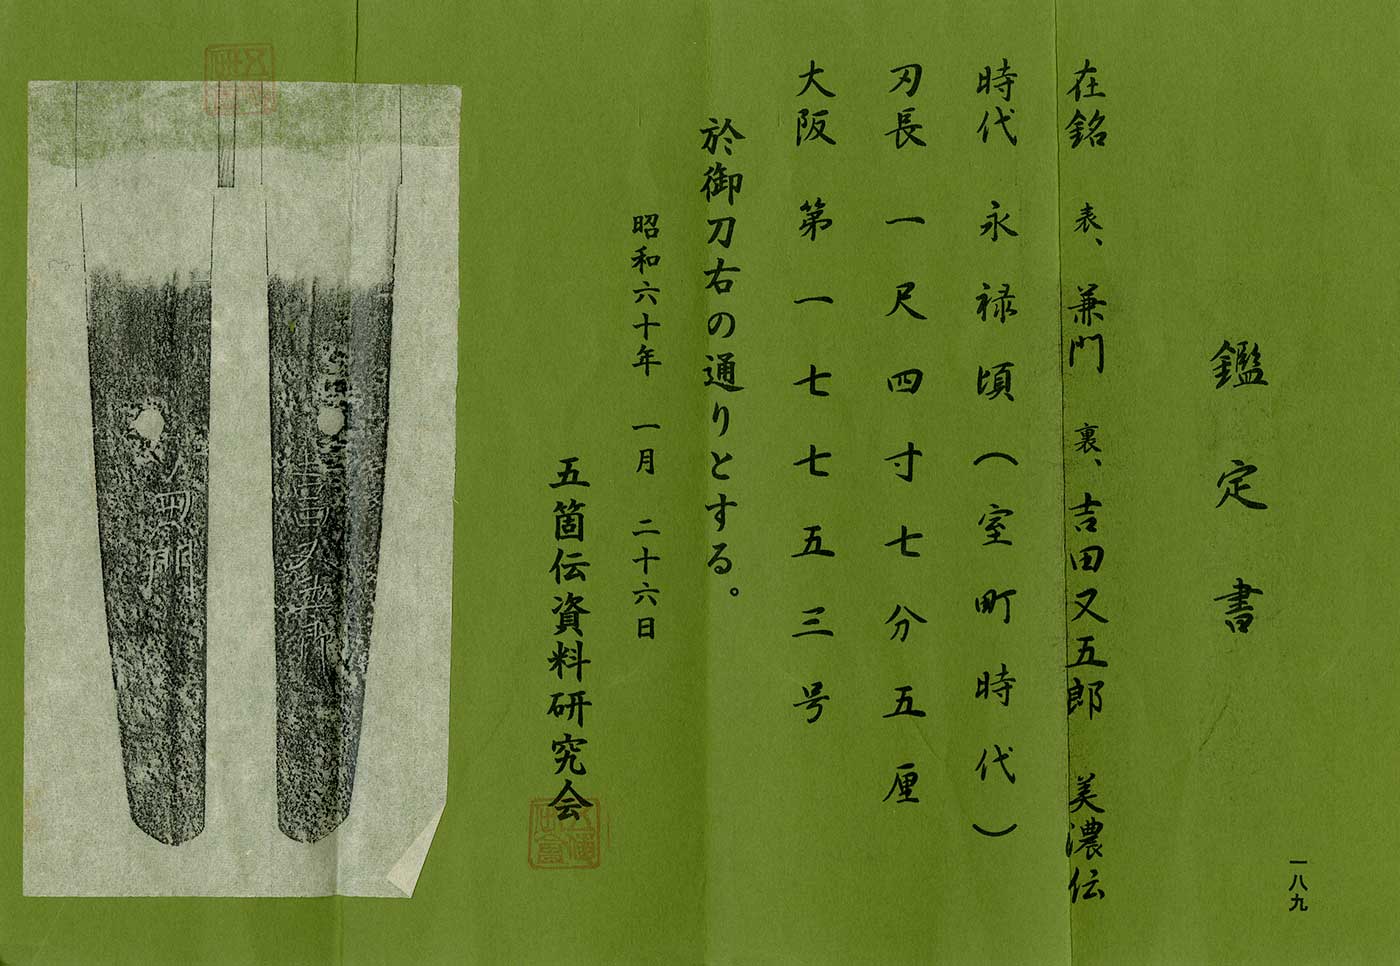 一八九
鑑定書
在銘 表、兼門 裏、吉田又五郎 美濃伝
時代 永禄頃(室町時代)
刃長 一尺四寸七分五厘
大阪 第一七七五三号
於御刀右の通りとする。
昭和六十年 一月 二十六日
五箇伝資料研究会